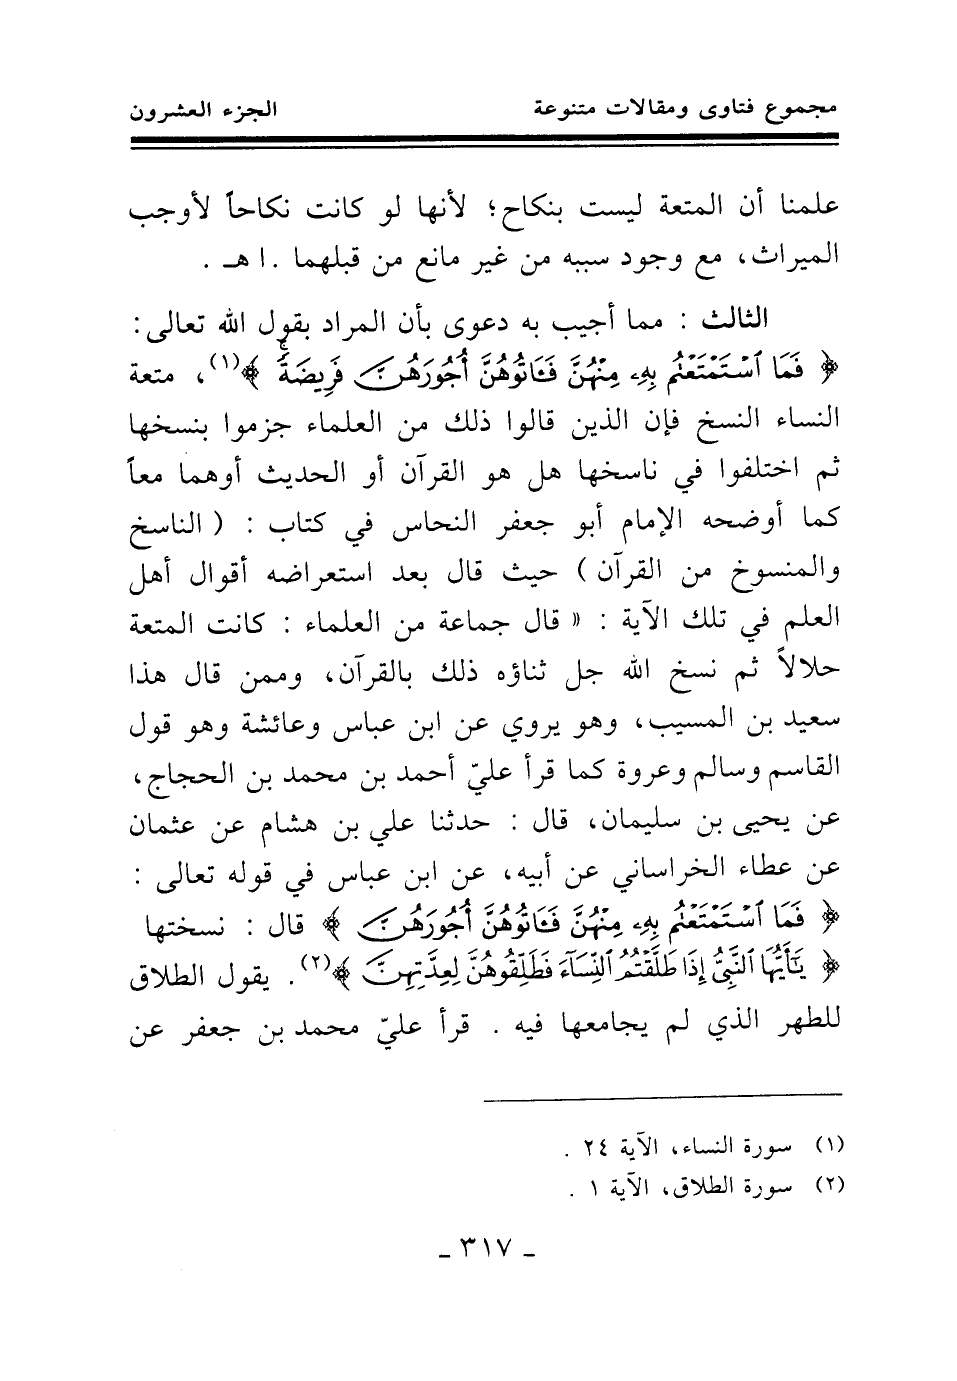 مجموع فتاوى ومقالات متنوعة الجزء العشرون
علمنا أن المتعة ليست بنكاح؛ لأنها لو كانت نكاحاً لأوجب
الميراث، مع وجود سببه من غير مانع من قبلهما . ا هـ .
الثالث : مما أجيب به دعوى بأن المراد بقول الله تعالى:
﴿ فَمَا ٱسْتَمْتَعْتُم بِهِۦ مِنْهُنَّ فَـَٔاتُوهُنَّ أُجُورَهُنَّ فَرِيضَةً ﴾(١)، متعة
النساء النسخ فإن الذين قالوا ذلك من العلماء جزموا بنسخها
ثم اختلفوا في ناسخها هل هو القرآن أو الحديث أوهما معاً
كما أوضحه الإمام أبو جعفر النحاس في كتاب : ( الناسخ
والمنسوخ من القرآن ) حيث قال بعد استعراضه أقوال أهل
العلم في تلك الآية : « قال جماعة من العلماء : كانت المتعة
حلالاً ثم نسخ الله جل ثناؤه ذلك بالقرآن، وممن قال هذا
سعيد بن المسيب، وهو يروي عن ابن عباس وعائشة وهو قول
القاسم وسالم وعروة كما قرأ عليّ أحمد بن محمد بن الحجاج،
عن يحيى بن سليمان، قال : حدثنا علي بن هشام عن عثمان
عن عطاء الخراساني عن أبيه، عن ابن عباس في قوله تعالى :
﴿ فَمَا ٱسْتَمْتَعْتُم بِهِۦ مِنْهُنَّ فَـَٔاتُوهُنَّ أُجُورَهُنَّ ﴾ قال : نسختها
﴿ يَـٰٓأَيُّهَا ٱلنَّبِىُّ إِذَا طَلَّقْتُمُ ٱلنِّسَآءَ فَطَلِّقُوهُنَّ لِعِدَّتِهِنَّ ﴾(٢) . يقول الطلاق
للطهر الذي لم يجامعها فيه . قرأ عليّ محمد بن جعفر عن
(١) سورة النساء، الآية ٢٤ .
(٢) سورة الطلاق، الآية ١ .
- ٣١٧ -